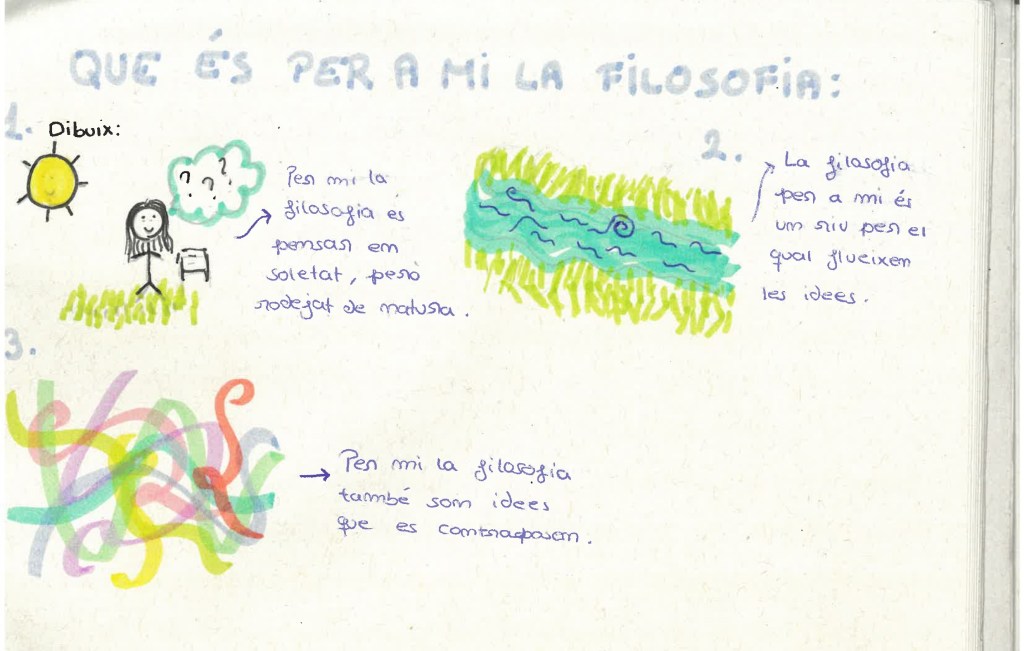 QUE ÉS PER A MI LA FILOSOFIA:
1. Dibuix:
? ? ?
Per mi la
filosofia es
pensar em
soletat, però
rodejat de natura.
2.
La filosofia
per a mi és
un riu per el
qual flueixen
les idees.
3.
Per mi la filosofia
també som idees
que es contraposen.